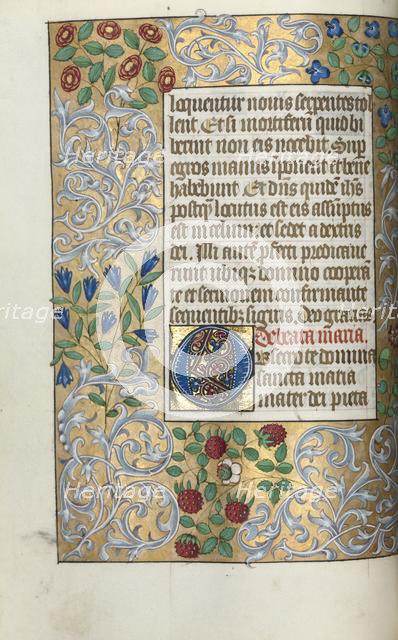 loquentur novis serpentes tol
lent. Et si mortiferū quid bi
berint non eis nocebit. Sup
egros manus īponent et bene
habebunt Et dn̄s quidē ihs̄
postq̄ locutus est eis assūptus
est in celum et sedet a dextris
dei. Illi autē pfecti predicave
runt ubiq; domino cooperā
te et sermonem confirmante
sequentib; signis. Deo gratias
De beata maria.
Obsecro te domina
sancta maria
mater dei pieta